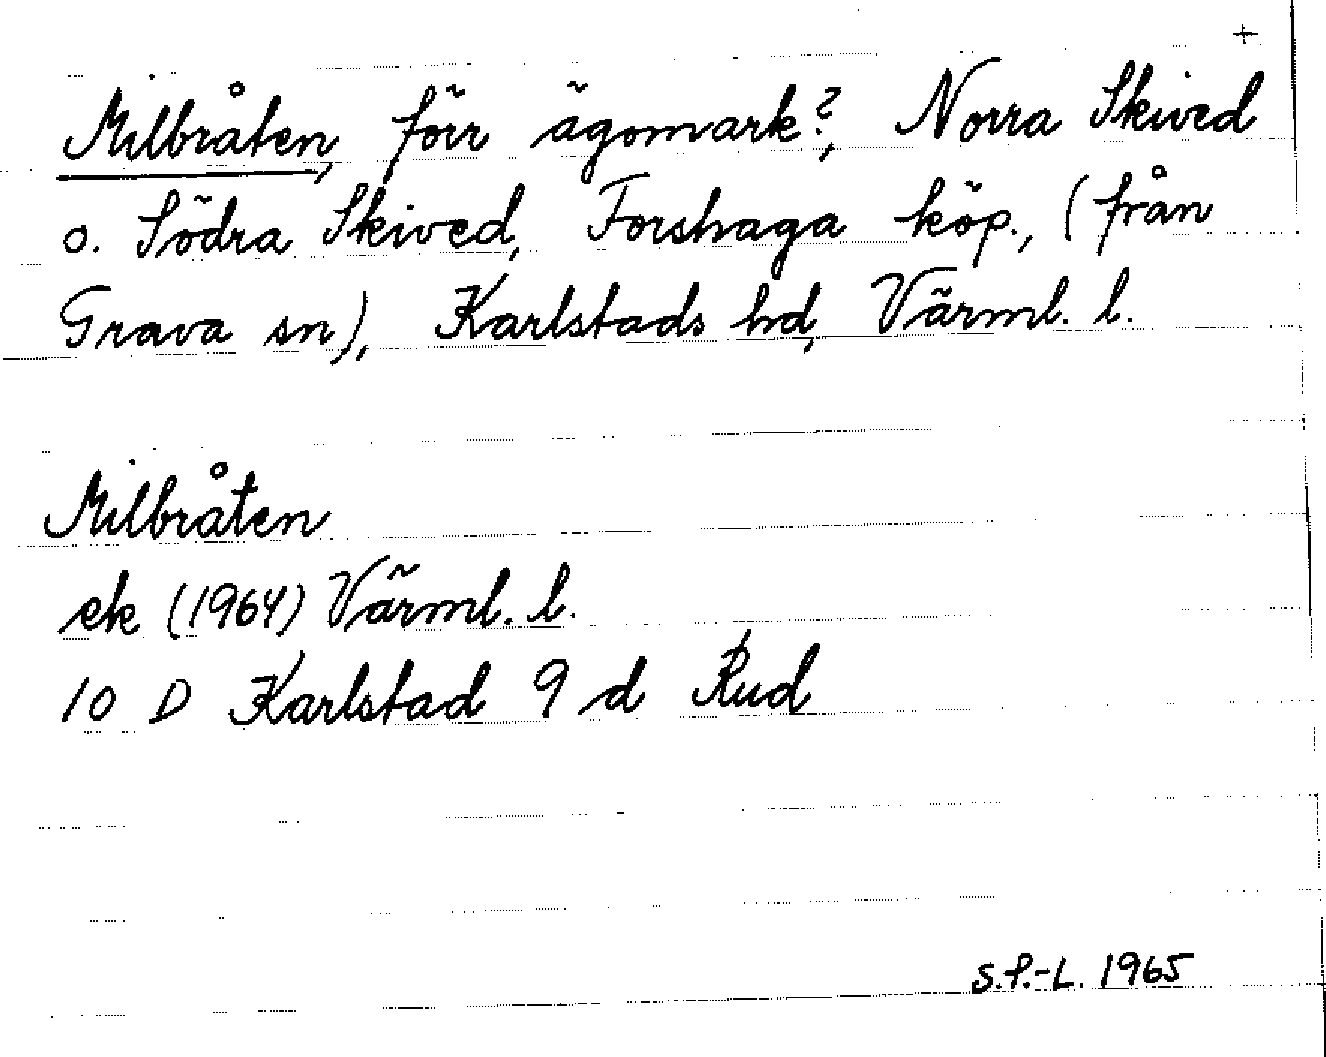 +
Milbråten, förr ägomark?, Norra Skived
o. Södra Skived, Forshaga köp., (från
Grava sn), Karlstads hd, Värml. l.
Milbråten
ek (1964) Värml. l.
10 D Karlstad 9 d Rud
S.P.-L. 1965